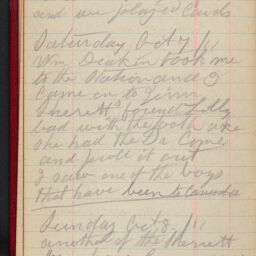 and we played Cards
Saturday Oct 7/11
Wm Deakin took me
to the Station and I
Came on to Jim
Sweretts found Lilly
bad with the tooth ake
she had the Da Come
and pull it out
I saw one of the boys
that have been to Canada
Sunday Oct 8/11
another of the Merrett